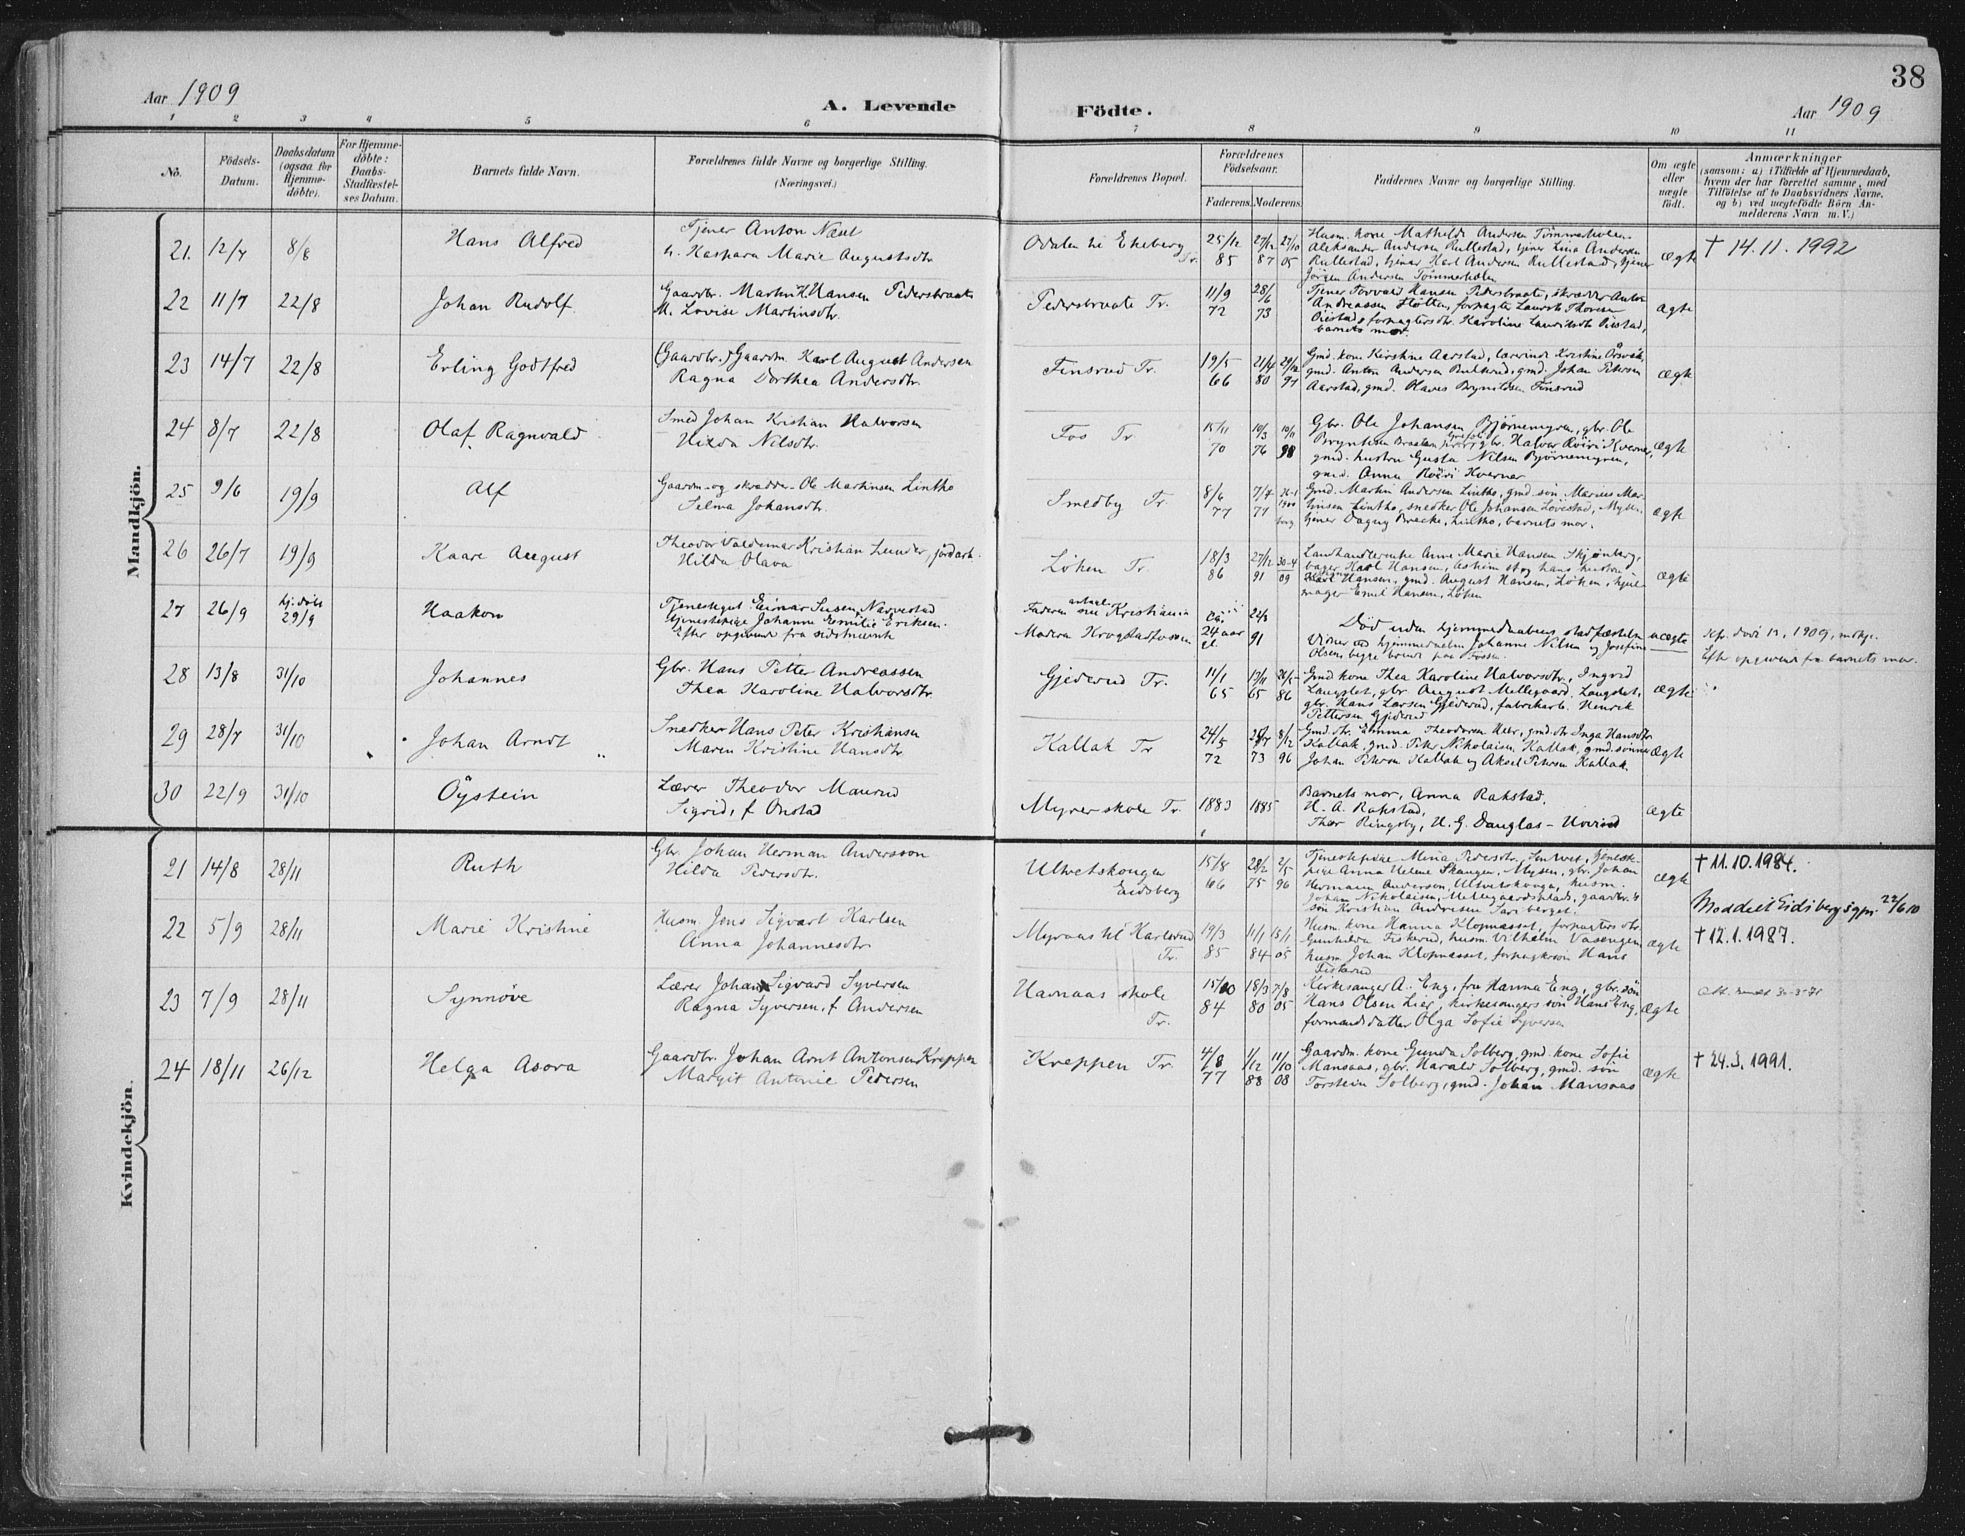 38
Aar 1909
A. Levende
Födte.
Aar 1909
1 2 3 4 5 6 7 8 9 10 11
No.
Födsels-
Datum.
Daabsdatum
(ogsaa for
Hjemme-
döbte).
For Hjemme-
döbte:
Daabs-
Stadfæstel-
ses Datum.
Barnets fulde Navn.
Forældrenes fulde Navne og borgerlige Stilling.
(Næringsvei.)
Forældrenes Bopæl.
Forældrenes
Födselsaar.
Faderens. Moderens.
Faddernes Navne og borgerlige Stilling.
Om ægte
eller
uægte
födt.
Anmærkninger
(saasom: a) i Tilfælde af Hjemmedaab,
hvem der har forrettet samme, med
Tilföielse af to Daabsvidners Navne,
og b) ved uægtefödte Börn An-
melderens Navn m. V.)
Mandkjön.
21. 12/7 8/8 Hans Alfred
Tjener Anton Næset
h. Kaspara Marie Augustsdtr
Odalen til Ekeberg Tr.
25/12 85 27/12 87 27/10 05
Husm. kone Mathilde Andersen Tømmerholen
Aleksander Andersen Rullestad, tjener Lina Andersen
Rullestad, tjener Karl Andersen Rullestad, tjener
Jörgen Andersen Tömmerholen
ægte
† 14.11.1992
22 11/7 22/8 Johan Rudolf
Gaardbr. Martin K. Hansen Pedersbraate
M. Lovise Martinsdtr.
Pedersbraate Tr.
11/9 72 28/6 73
Tjener Torvald Hansen Pedersbraate, skrædder Anton
Andreassen Fløtten, forpagter Laurits Thoresen
Öiestad, forpagtersdtr. Karoline Lauritsdtr Öiestad,
barnets mor.
ægte
23 14/7 22/8 Erling Godtfred
(Gaardbr.) Gaardm. Karl August Andersen
Ragna Dorthea Andersdtr.
Finsrud Tr.
19/5 66 21/4 80 29/12 97
Gmd. kone Kirstine Aarstad, lærerinde Kristine
gmd. Anton Andersen gmd. Johan Petersen
Aarstad, gmd. Olaves Brynildsen Finsrud
ægte
24 8/7 22/8 Olaf Ragnvald
Smed Johan Kristian Halvorsen
Hilda Nilsdtr.
Fos Tr.
15/11 70 10/3 76 10/11 98
Gbr. Ole Johansen Bjørnemyren, gbr. Ole
Halvor Kverner,
gmd. hustru Gusta Nilsen Bjørnemyren,
gmd. Anna Kverner
ægte
25 9/6 19/9 Alf
Gaardm. og skrædder Ole Martinsen Lintho
Selma Johansdtr.
Smedby Tr.
8/6 77 7/4 77 26-1 1900 borg.
Gmd. Martin Andersen Lintho, gmd. søn Marius Mar-
tinsen Lintho, snedker Ole Johansen Løvestad, Mysen,
tjener Dagny Brecke, Lintho, barnets mor.
ægte
26 26/7 19/9 Kaare August
Theodor Valdemar Kristian Lunder, jordarb.
Hilda Olava
Løken Tr.
18/3 86 27/12 91 30-4 09
Landhandlerenke Anne Marie Hansen Skjønberg,
bager Karl Hansen, Askim st og hans hustru
Hansen, gmd. August Hansen, Løken, hjul-
mager Emil Hansen, Løken
ægte
27 26/9 hj. døbt 29/9 Haakon
Tjenestegut Einar Narvestad
tjenestepige Johanne Emilie Eriksen.
Efter opgivende fra sidstnævnte
Faderen antagel. Kristiania
Moderen Krogstadfossen
Ca. 24 aar gl. 22/3 91
Död uden hjemmedaabens stadfæstelse
Vidner ved hjemmedaaben Johanne Nilsen og Josefine
Olsen, begge boende paa Fossen.
uægte
Kfr. døde n. 1909, mandkj.
Efter opgivende fra barnets mor.
28 13/8 31/10 Johannes
Gbr. Hans Petter Andreassen
Thea Karoline Halvorsdtr.
Gjederud Tr.
11/1 65 17/11 65 26/5 86
Gmd kone Thea Karoline Halvorsdtr, Ingrid
Langslet, gbr. August Mellegaard, Langslet,
gbr. Hans Larsen Gjederud, fabrikarb. Henrik
Pettersen Gjederud
ægte
29 28/7 31/10 Johan Arndt
Snedker Hans Peter Kristiansen
Maren Kristine Hansdtr.
Kallak Tr
24/5 72 29/7 73 8/12 96
Gmd. dtr. Emma Theodorsen Heer, gmd. dtr Inga Hansdtr
Kallak, gmd. Peter Nikolaisen Kallak, gmd. sønner
Johan Petersen Kallak og Aksel Petersen Kallak.
ægte
30 22/9 31/10 Öystein
Lærer Theodor Maurud
Sigrid, f. Onstad
Myrer skole Tr.
1883 1885
Barnets mor, Anna Rakstad,
H. A. Rakstad,
Thor Ringsby, H. G. Douglas-
ægte
Kvindekjön.
21 14/8 28/11 Ruth
Gbr. Johan Herman Andersson
Hilda Pedersdtr.
Ultvetskougen
Eidsberg
15/8 66 28/2 75 2/5 96
Tjenestepige Mina Pedersdtr, tjeneste-
pige Anna Helene Skaugen, Mysen, gbr. Johan
Hermann Andersson, Ultvetskouga, husm.
Johan Nikolaisen, Mellegaardsplads, gaardbr's
søn Kristian Andresen
ægte
† 11.10.1984.
Meddelt Eidsberg sgpr. 22/6 10
22 5/9 28/11 Marie Kristine
Husm. Jens Sigvart Karlsen
Anna Johannesdtr.
Myraas til Karlsrud
Tr.
19/3 85 11/1 84 15/1 05
Husm. kone Hanna Klopnæsset, forpagters dtr.
Gunhilda Fiskerud, husm. Vilhelm Vasengen
husm. Johan Klopnæsset, forpagterson Hans
Fiskerud
ægte
† 12.1.1987.
23 7/9 28/11 Synnöve
Lærer Johan Sigvard Syversen
Ragna Syversen, f. Andersen
Havnaas skole
Tr.
15/10 84 18/3 80 7/8 05
Kirkesanger A. Eng, fru Hanna Eng, gbr. søn
Hans Olsen Lier, kirkesangers søn Hans Eng,
formandsdatter Olga Sofie Syversen
ægte
24 18/11 26/12 Helga Asora
Gaardbr. Johan Arnt Antonsen Kreppen
Margit Antonie Pedersen
Kreppen Tr.
4/8 77 1/12 88 11/10 08
Gaardm. kone Gunda Solberg, gmd. kone Sofie
Mansaas, gbr. Harald Solberg, gmd. søn
Torstein Solberg, gmd. Johan Mansaas
ægte
† 24.3.1991.